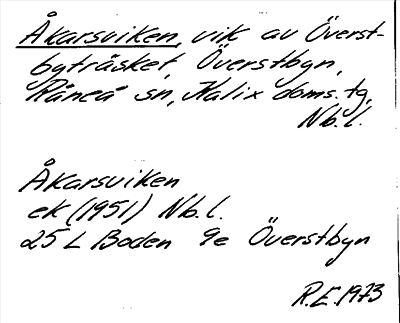 Åkarsviken, vik av Överst-
byträsket, Överstbyn,
Råneå sn, Kalix doms. tg,
Nb. l.
Åkarsviken
ek (1951) Nb. l.
25 L Boden 9e Överstbyn
R.E. 1973